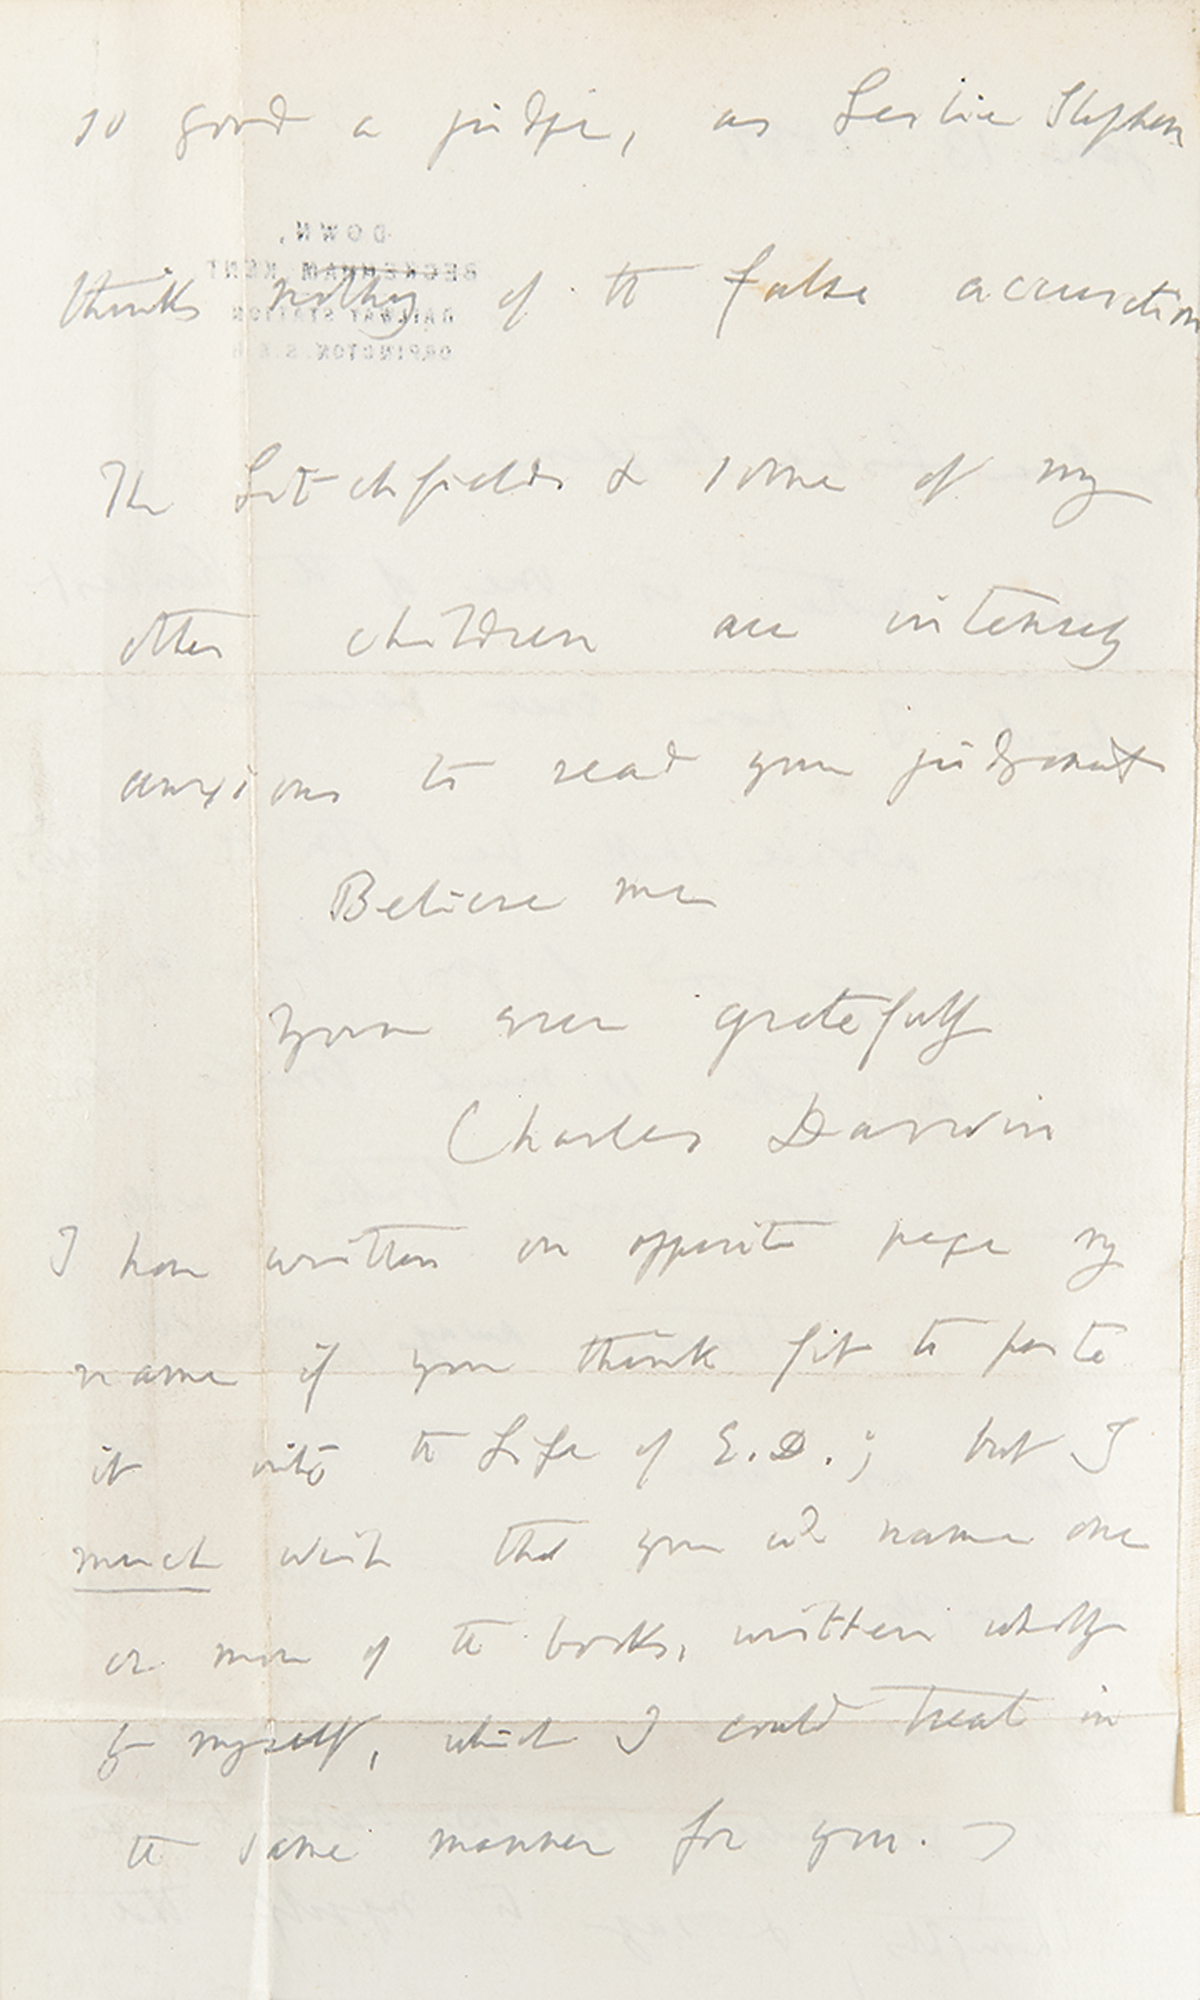 so good a judge, as Leslie Stephen
thinks nothing of the false accusation
The Litchfields & some of my
other children are intensely
anxious to read your judgment
Believe me
yours ever gratefully
Charles Darwin
I have written on opposite page my
name if you think fit to paste
it into the Life of E.D.; but I
much wish that you wd name one
or more of the books, written wholly
by myself, which I could treat in
the same manner for you.
DOWN,
BECKENHAM, KENT
RAILWAY STATION
ORPINGTON. S.E.R